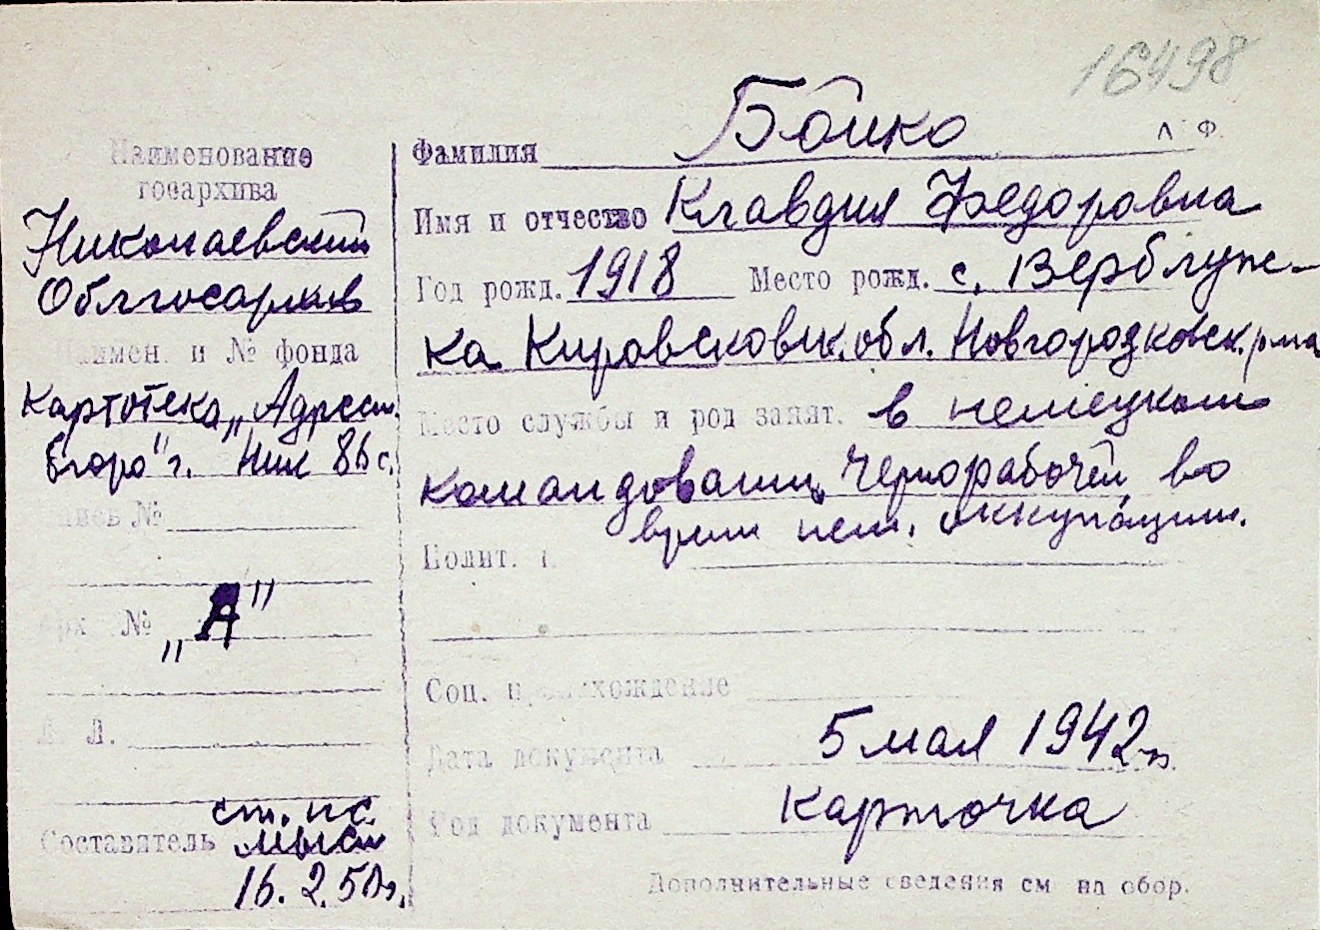 16498
Наименование
госархива
Николаевский
Облгосархив
Наимен. и № фонда
Картотека „Адресн.
бюро" г. Ник
№
Арх №
„А"
Л.
ст. н.с.
Составитель
16. 2. 50 г.
Фамилия Бойко
Л Ф.
Имя и отчество Клавдия Федоровна
Год рожд. 1918 Место рожд. с. Верблуж-
ка Кировск. обл. Новгородковск. р-на
Место службы и род занят. в немецком
командовании, Чернорабочей во
время нем. оккупации.
Полит.
Соц. происхождение
Дата документа 5 мая 1942 г.
Род документа Карточка
Дополнительные сведения см на обор.